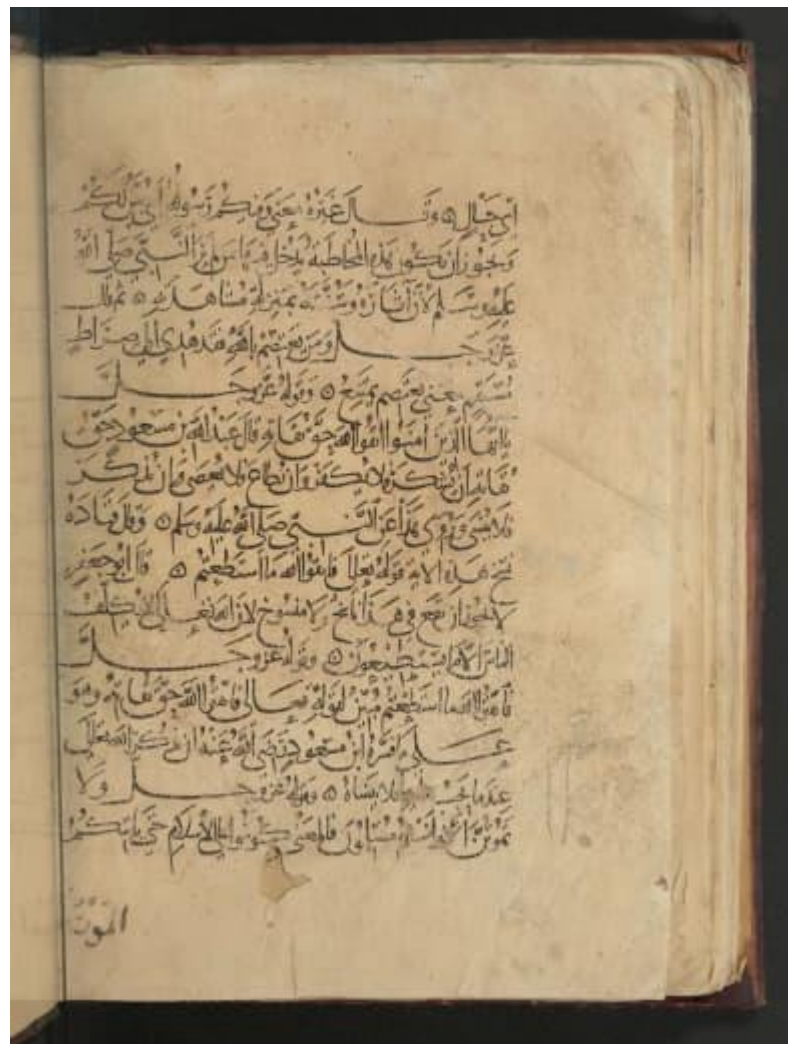 اي حبال ۞ وقال غيره يعني وفيكم رسوله اي يبين لكم
ويجوز ان يكون هذه المخاطبة يدخل فيها من لم ير النبي صلى الله
عليه وسلم لان اثاره وسنته بمنزلة مشاهدته ۞ ثم قال
عز وجل ومن يعتصم بالله فقد هدي الى صراط
مستقيم يعني يعتصم يمتنع ۞ وقوله عز وجل
يا ايها الذين امنوا اتقوا الله حق تقاته قال عبد الله بن مسعود حق
تقاته ان يشكر فلا يكفر وان يطاع فلا يعصى وان يذكر
فلا ينسى وروي هذا عن النبي صلى الله عليه وسلم ۞ وقال قتادة
نسخ هذه الاية قوله تعالى فاتقوا الله ما استطعتم ۞ قال ابو جعفر
لا يجوز ان يقع في هذا ناسخ ولا منسوخ لان الله تعالى لا يكلف
الناس الا ما يستطيعون ۞ وقوله عز وجل
فاتقوا الله ما استطعتم مبين لقوله تعالى فاتقوا الله حق تقاته وهو
على ما فسره ابن مسعود رضي الله عنه ان يذكر الله تعالى
عند ما يجب عليه فلا ينساه ۞ وقوله عز وجل ولا
تموتن الا وانتم مسلمون فالمعنى كونوا على الاسلام حتى ياتيكم
الموت